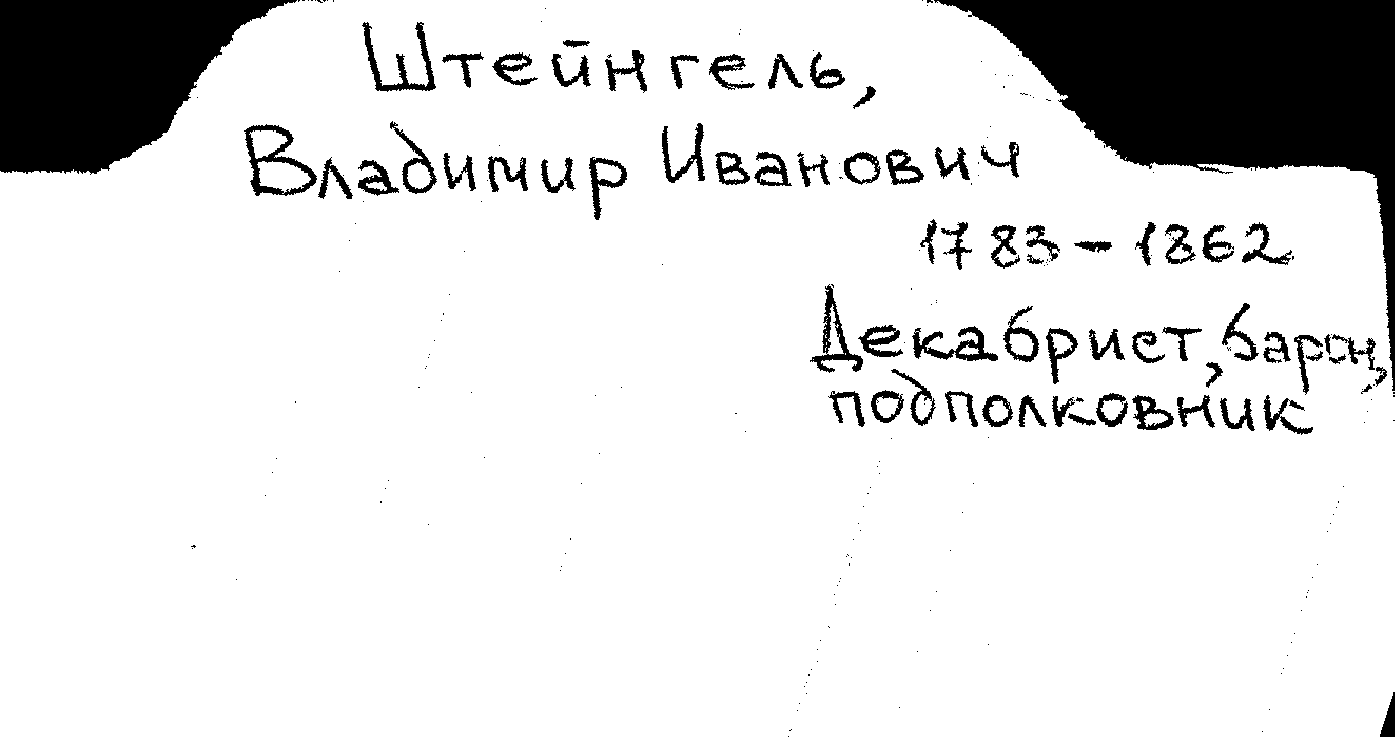 Штейнгель,
Владимир Иванович
1783 - 1862
Декабрист, барон,
подполковник